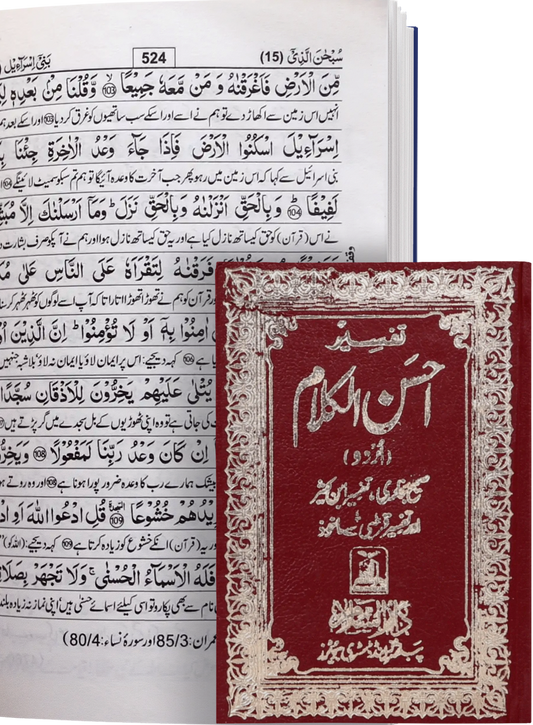 سُبْحٰنَ الَّذِیْۤ (15)
524
بَنِیْۤ اِسْرَآءِیْل
مِّنَ الْاَرْضِ فَاَغْرَقْنٰهُ وَ مَنْ مَّعَهٗ جَمِیْعًا ۙ﴿103﴾ وَّقُلْنَا مِنْۢ بَعْدِهٖ
انہیں اس زمین سے اکھاڑ دے تو ہم نے اسے اور اسکے سب ساتھیوں کو غرق کر دیا 103 اور اسکے بعد ہم
اِسْرَآءِیْلَ اسْكُنُوا الْاَرْضَ فَاِذَا جَآءَ وَعْدُ الْاٰخِرَةِ جِئْنَا
بنی اسرائیل سے کہا کہ اس زمین میں رہو پھر جب آخرت کا وعدہ آئیگا تو ہم تم سبکو سمیٹ لائینگے 104
لَفِیْفًا ﴿104﴾ وَبِالْحَقِّ اَنْزَلْنٰهُ وَبِالْحَقِّ نَزَلَ ؕ وَمَاۤ اَرْسَلْنٰكَ اِلَّا
نے اس (قرآن) کو حق کیساتھ نازل کیا ہے اور حق کیساتھ نازل ہوا اور ہم نے آپکو صرف بشارت
فَرَقْنٰهُ لِتَقْرَاَهٗ عَلَی النَّاسِ عَلٰی
قرآن کو ہم نے تھوڑا تھوڑا اتارا تاکہ آپ اسے لوگوں کو ٹھہر ٹھہر کر
اٰمِنُوْا بِهٖۤ اَوْ لَا تُؤْمِنُوْا ؕ اِنَّ الَّذِیْنَ
ہے 106 کہہ دیجیے: اس پر ایمان لاؤ یا ایمان نہ لاؤ، بلاشبہ جنہیں
یُتْلٰی عَلَیْهِمْ یَخِرُّوْنَ لِلْاَذْقَانِ سُجَّدًا
کی جاتی ہے تو وہ اپنی ٹھوڑیوں کے بل سجدے میں گر پڑتے ہیں
اِنْ كَانَ وَعْدُ رَبِّنَا لَمَفْعُوْلًا ﴿108﴾
بیشک ہمارے رب کا وعدہ ضرور پورا ہونا ہے 108 اور وہ روتے
یَزِیْدُهُمْ خُشُوْعًا ﴿109﴾ قُلِ ادْعُوا اللّٰهَ اَوِ
اور یہ (قرآن) انکے خشوع کو زیادہ کرتا ہے 109 کہہ دیجیے:
فَلَهُ الْاَسْمَآءُ الْحُسْنٰی ۚ وَلَا تَجْهَرْ
نام سے بھی پکارو تو اسی کیلئے اسمائے حسنٰی ہیں، اپنی نماز نہ زیادہ بلند
عمران: 85/3 اور سورۂ نساء: 80/4)
تفسیر
احسن الکلام
(اُردو)
صحیح بخاری، تفسیر ابن کثیر
اور تفسیر قرطبی سے ماخوذ
دارالسلام
پبلشرز اینڈ ڈسٹری بیوٹرز